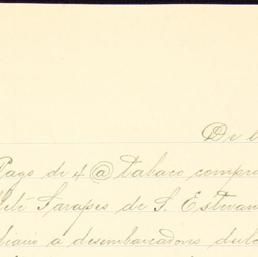 De l
Pago de 4 @ tabaco compra
Sarapes de S. Estevan
diario a desembarcadores dulc